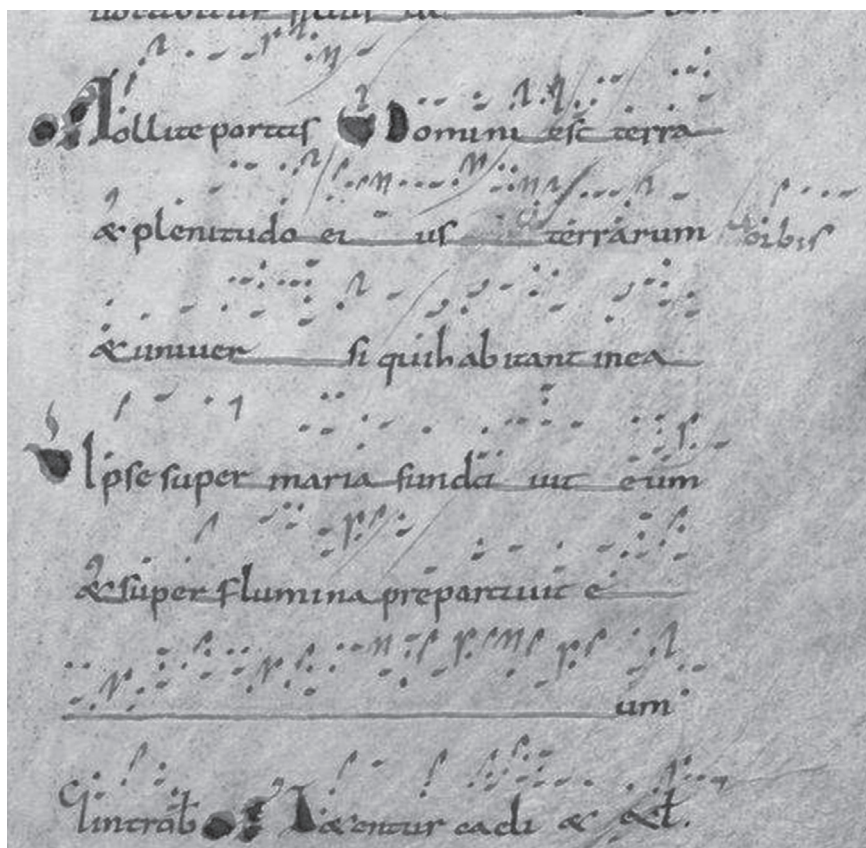 OF Tollite portas V Domini est terra
& plenitudo ei us terrarum orbis
& uniuer si qui habitant in ea
V Ipse super maria funda uit eum
& super flumina preparauit e
um
intrab OF L&entur caeli &